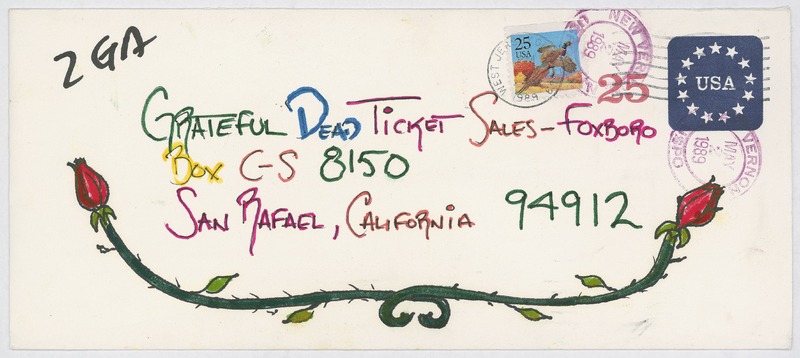 2 GA
25
USA
WEST JER
1989
NEW VER
MAY
1989
25
USA
VERNON
MAY
1989
USPO
GRATEFUL DEAD TICKET SALES - FOXBORO
BOX C-S 8150
SAN RAFAEL, CALIFORNIA 94912